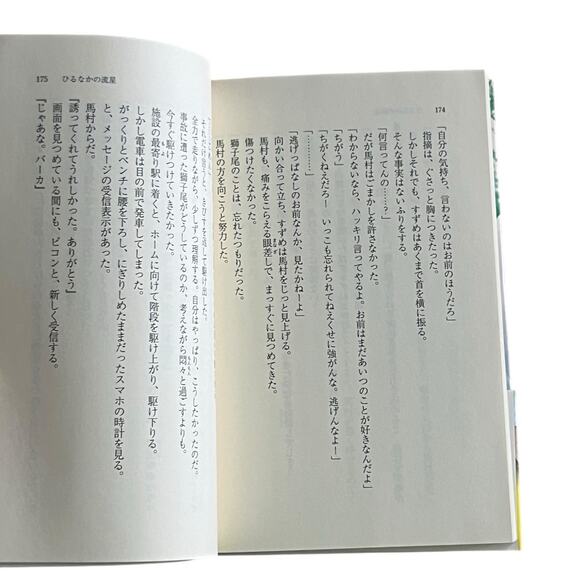 174
「自分の気持ち、言わないのはお前のほうだろ」
指摘は、ぐさっと胸につきたった。
それでも、すずめはあくまで首を横に振る。
そんな事実はないふりをする。
「何言ってんの……？」
だが馬村はごまかしを許さなかった。
「わからないなら、ハッキリ言ってやるよ。お前はまだあいつのことが好きなんだよ」
「ちがう」
「ちがくねえだろー　いっこも忘れられてねえくせに強がんな。逃げんなよー」
「…………」
「逃げっぱなしのお前なんか、見たかねーよ」
向かい合って立ち、すずめは馬村をじっと見上げる。
馬村も、痛みをこらえる眼差しで、まっすぐに見つめてきた。
傷つけたくなかった。
獅子尾のことは、忘れたつもりだった。
馬村の方を向こうと努力した。
175　ひるなかの流星
きびすを返して駆け出した。
全力で走りながら、少しずつ理解する。自分はやっぱり、こうしたかったのだ。
事故に遭った獅子尾がどうしているのか、考えながら悶々と過ごすよりも。
今すぐ駆けつけていきたかった。
施設の最寄り駅に着くと、ホームに向けて階段を駆け上がり、駆け下りる。
しかし電車は目の前で発車してしまった。
がっくりとベンチに腰を下ろし、にぎりしめたままだったスマホの時計を見る。
と、メッセージの受信表示があった。
馬村からだ。
『誘ってくれてうれしかった。ありがとう』
画面を見つめている間にも、ピコンと、新しく受信する。
『じゃあな。バーカ』